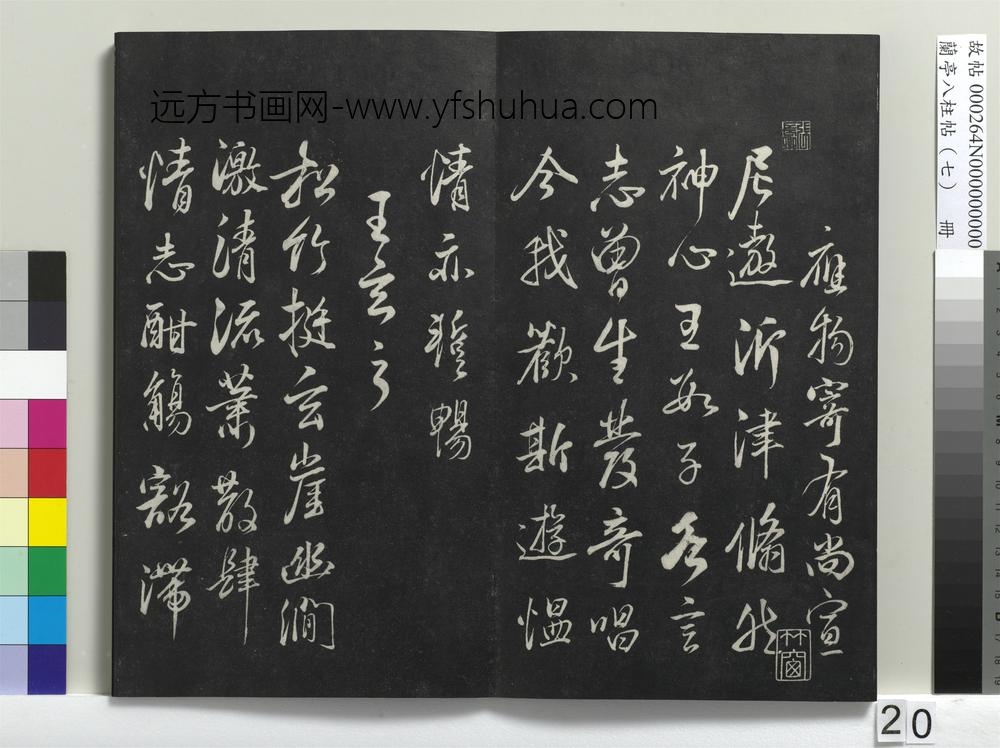 故帖 000264N000000000
蘭亭八柱帖（七） 冊
远方书画网-www.yfshuhua.com
應物寄有尚宣
尼遨沂津翛然
神心王數子各言
志曾生發奇唱
今我歡斯遊慍
情亦蹔暢
王玄之
松竹挺玄崖幽澗
激清流蕭散肆
情志酣觴豁滯
20